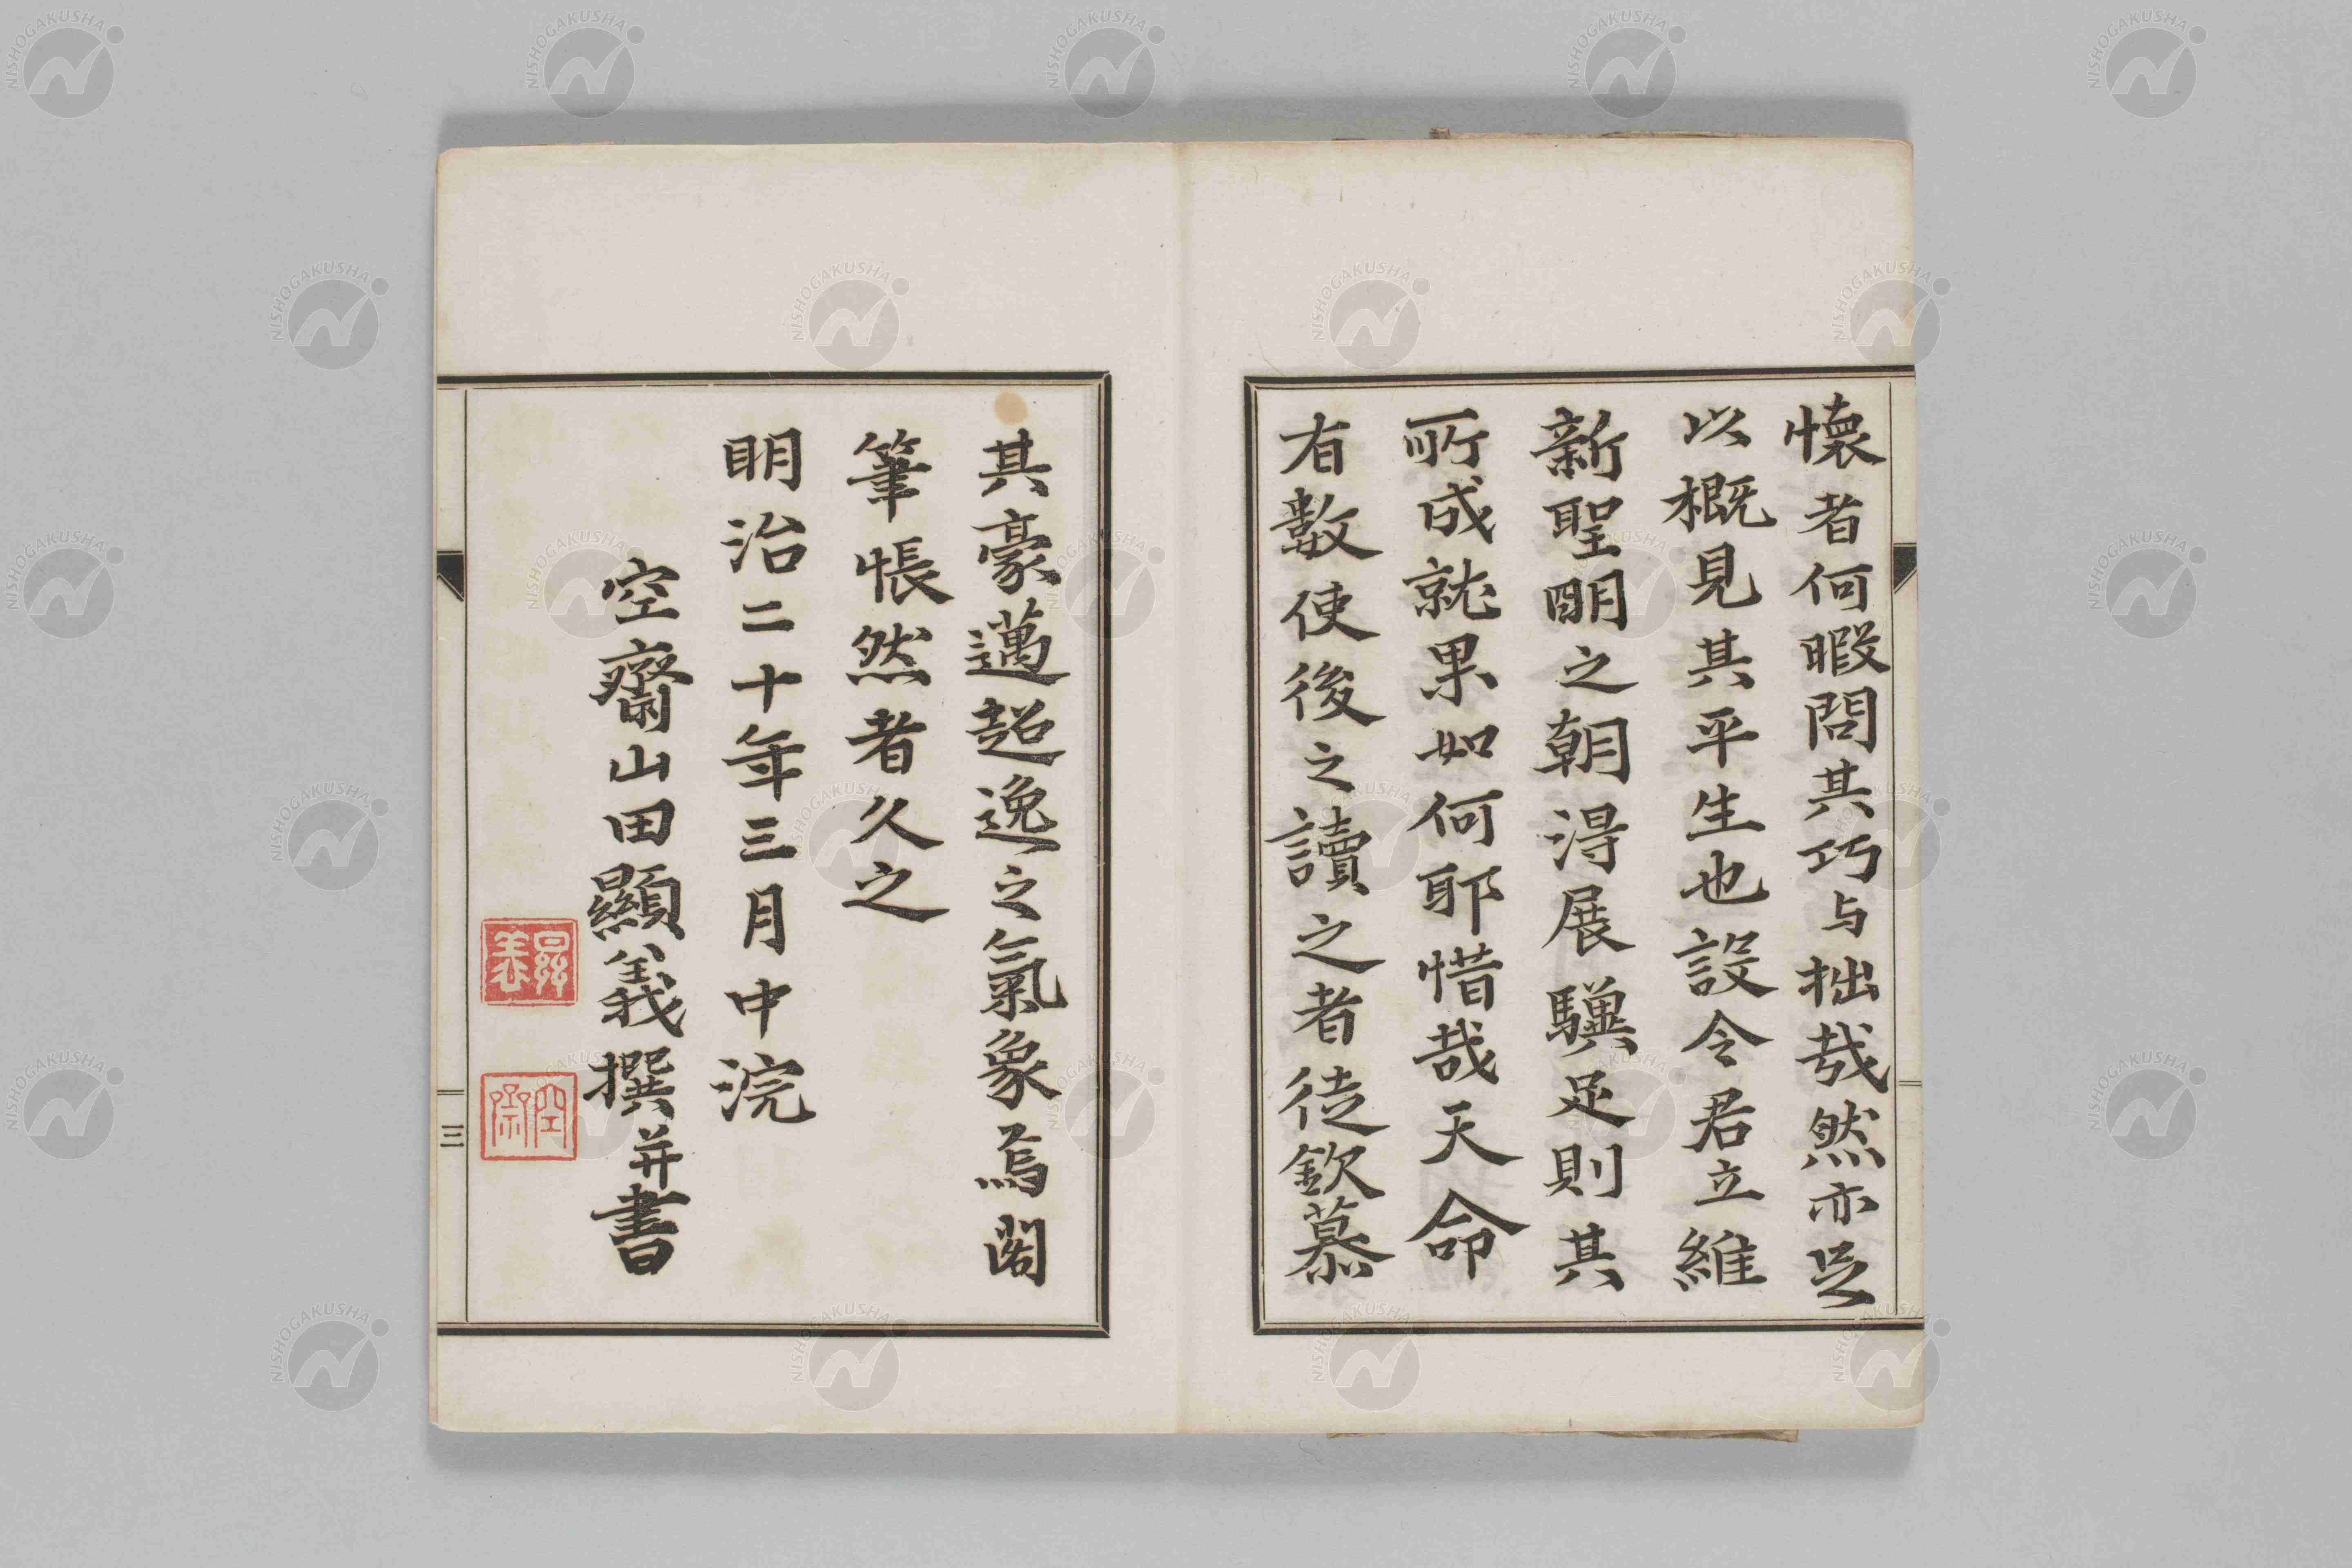 懷者何暇問其巧与拙哉然亦足
以概見其平生也設令君立維
新聖明之朝淂展驥足則其
所成就果如何耶惜哉天命
有數使後之讀之者徒欽慕
其豪邁超逸之氣象焉閣
筆悵然者久之
明治二十年三月中浣
空齋山田顯義撰并書
顯義
空齋
三
NISHOGAKUSHA